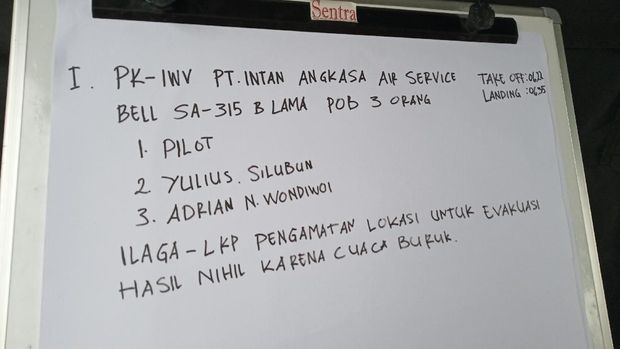 Sentra
I. PK-IWV PT. INTAN ANGKASA AIR SERVICE
TAKE OFF: 0622
BELL SA-315 B LAMA POB 3 ORANG
LANDING : 0635
1. PILOT
2 YULIUS. SILUBUN
3. ADRIAN N. WONDIWOI
ILAGA - LKP PENGAMATAN LOKASI UNTUK EVAKUASI
HASIL NIHIL KARENA CUACA BURUK.